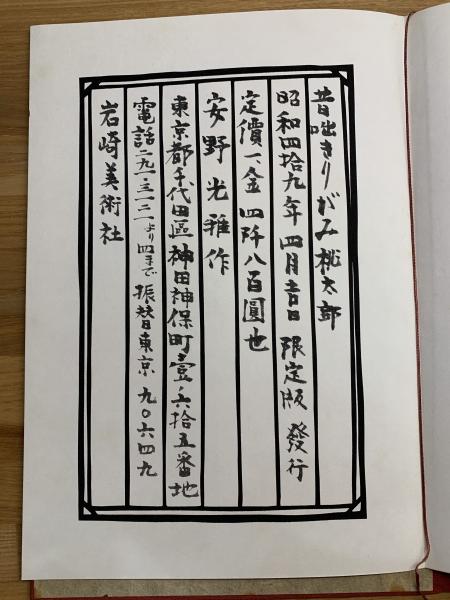 昔咄きりがみ桃太郎
昭和四拾九年四月吉日 限定版 發行
定價一、金 四阡八百圓也
安野光雅作
東京都千代田區神田神保町壹ノ六拾五番地
電話二九一・三一二一より四まで 振替東京 九〇六四九
岩崎美術社